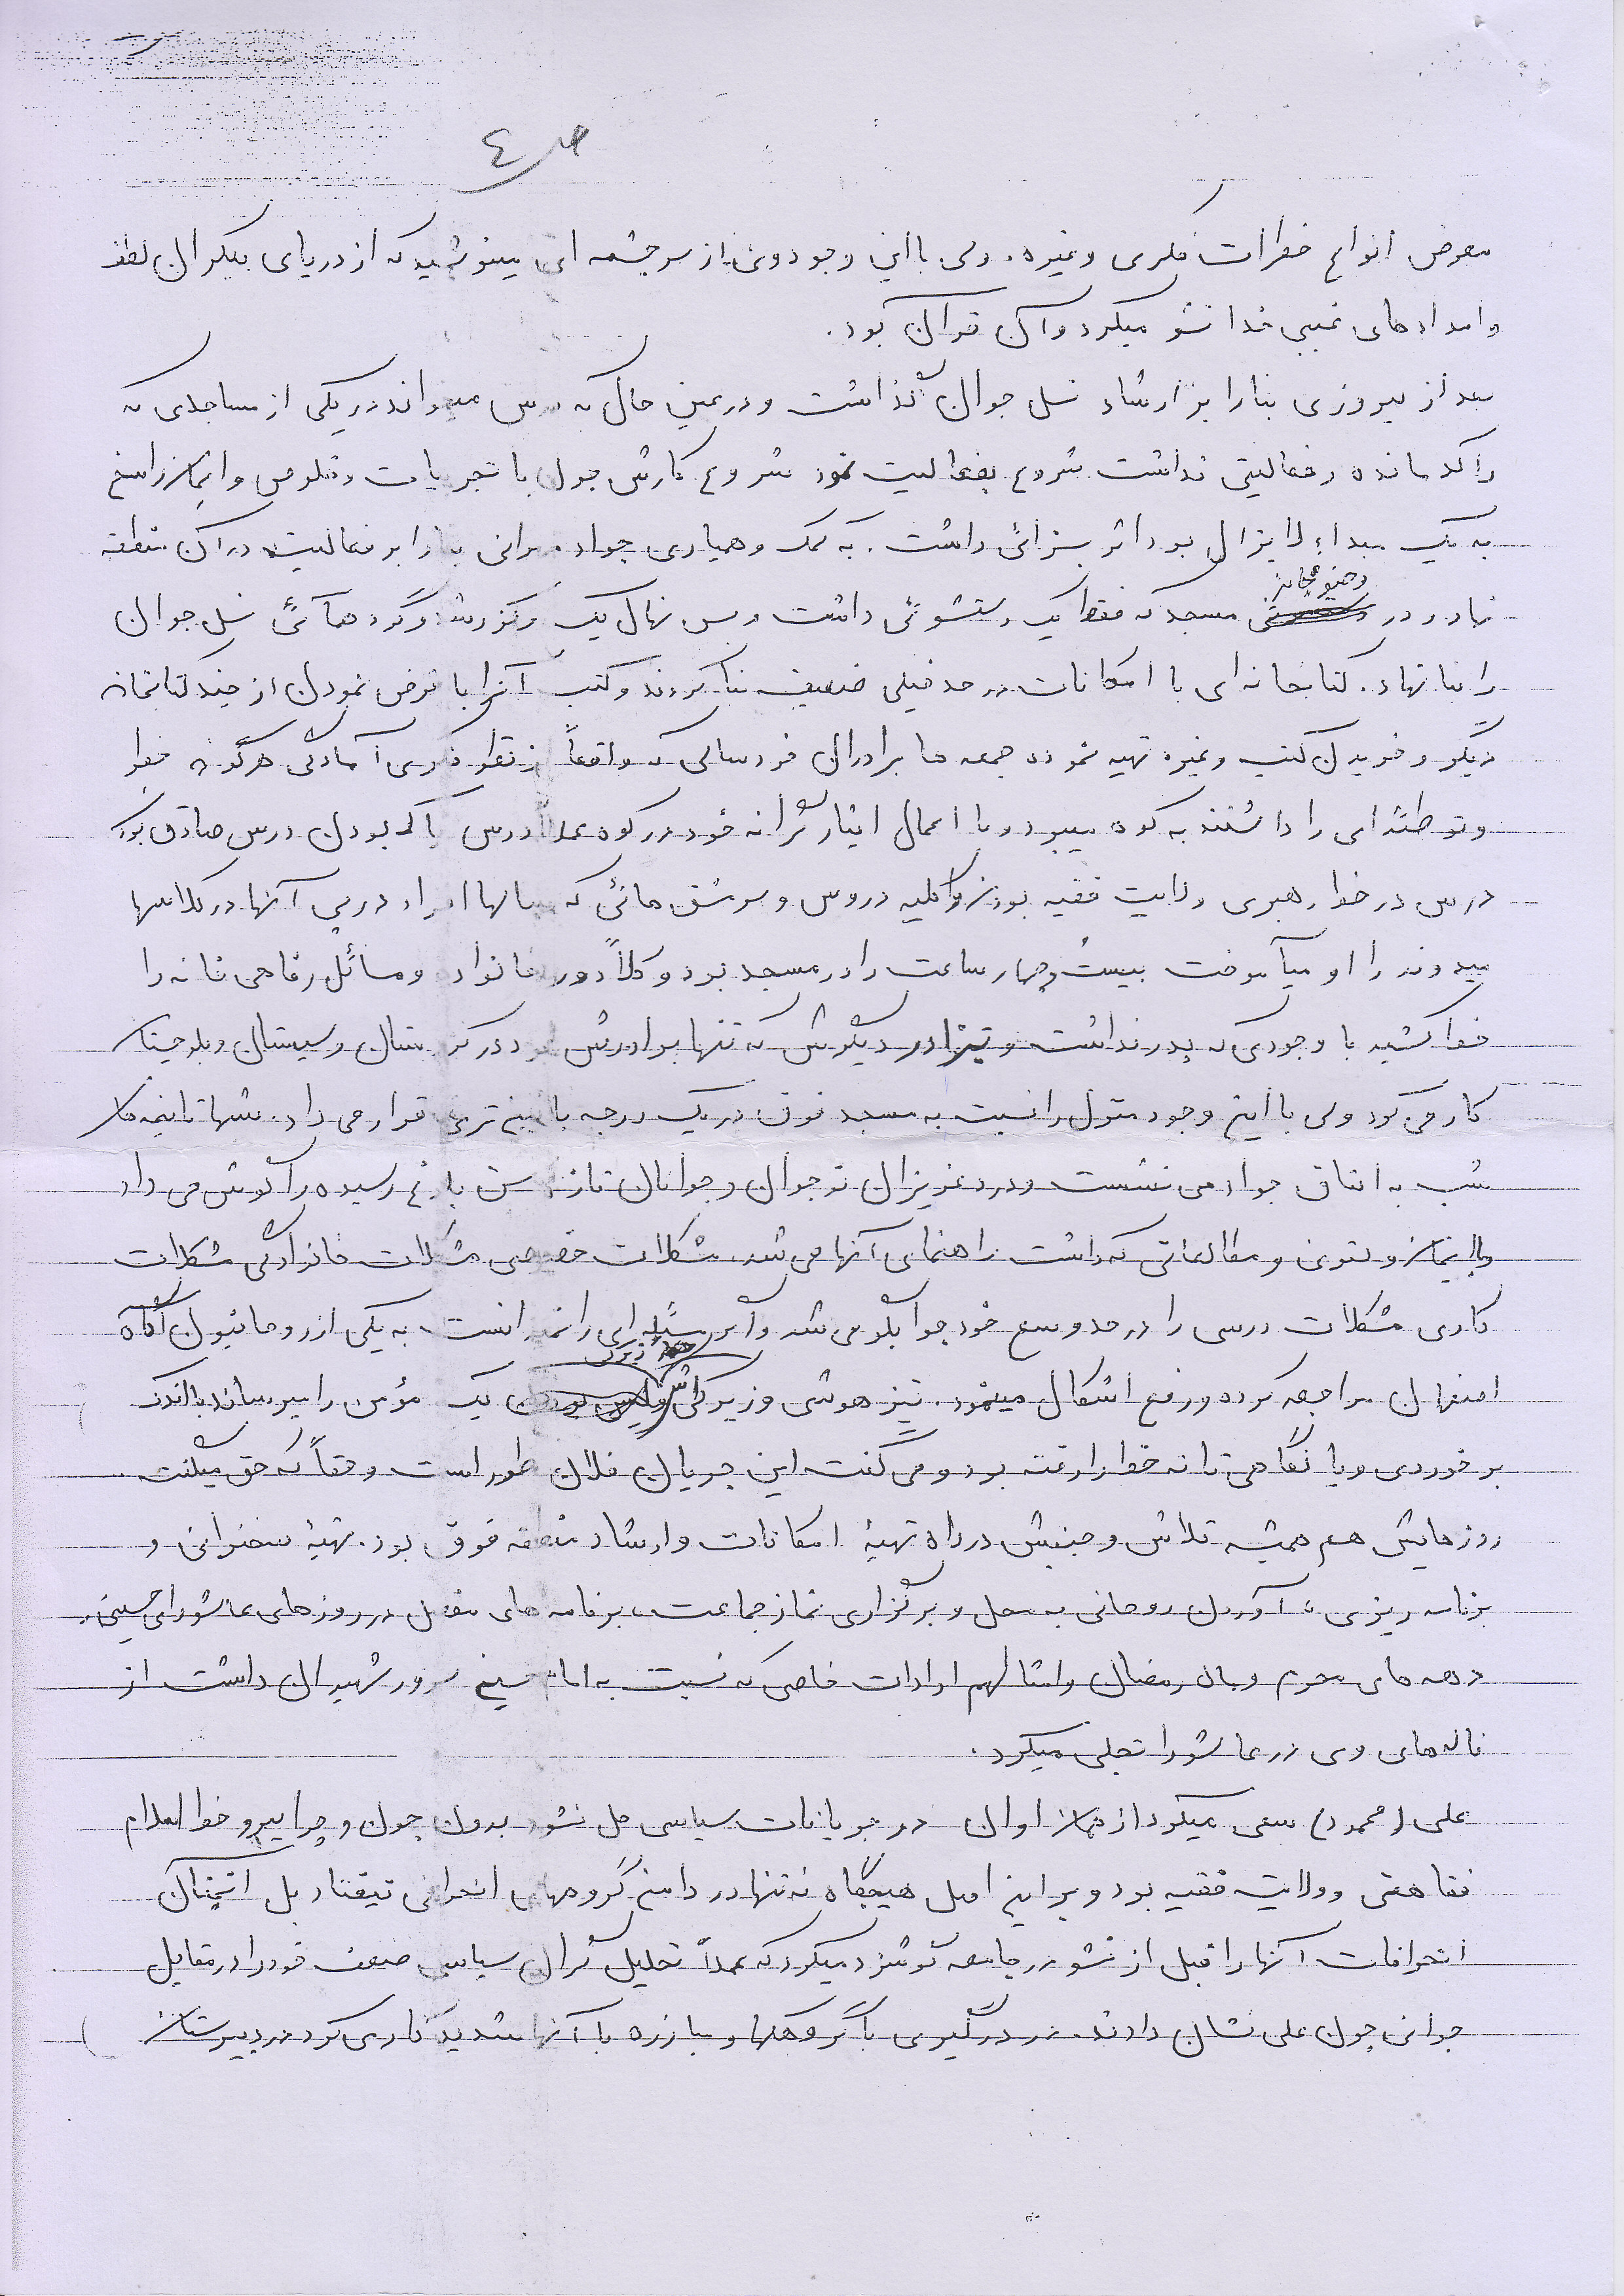 ص ٤
معرض انواع خطرات فکری و غیره. ولی با این وجود وی از سرچشمه ای مینوشید که از دریای بیکران لطف
و امدادهای غیبی خدا نشو میکرد و آن قرآن بود.
بعد از پیروزی بنا را بر ارشاد نسل جوان گذاشت و در عین حال که درس میخواند در یکی از مساجدی که
راکد مانده و فعالیتی نداشت شروع بفعالیت نمود شروع کارش چون با تجربیات و خلوص و ایمان راسخ
به یک مبداء لایزال بود اثر بسزائی داشت. به کمک و همیاری جواد بنا را بر فعالیت در آن منطقه
نهاد و در وضوخانه مسجد که فقط یک دستشوئی داشت و بس نهال یک مرکز رشد و گرد همآئی نسل جوان
را بنا نهاد. کتابخانه ای با امکانات در حد خیلی ضعیف بنا کردند و کتب آنرا با قرض نمودن از چند کتابخانه
دیگر و خریدن کتب و غیره تهیه نموده جمعه ها برادران خردسالی که واقعاً از نظر فکری آمادگی هرگونه خطر
و توطئه ای را داشتند به کوه میبرد و با اعمال ایثارگرانه خود در کوه عملاً درس پاک بودن درس صادق بودن
درس در خط رهبری ولایت فقیه بودن و کلیه دروس و سرمشق هائی که سالها افراد در پی آنها در کلاسها
میدوند را او میآموخت بیست و چهار ساعت را در مسجد بود و کلاً دور خانواده و مسائل رفاهی خانه را
خط کشید با وجودی که پدر نداشت و برادر دیگرش که تنها برادرش بود در کردستان و سیستان و بلوچستان
کار می کرد ولی با این وجود منزل را نسبت به مسجد فوق در یک درجه پایین تری قرار می داد. شبها تا نیمه های
شب به اتفاق جواد می نشست و درد عزیزان نوجوان و جوانان تازه سن بلوغ رسیده را گوش می داد
و با ایمان و تقوی و مطالعاتی که داشت راهنمای آنها می شد. مشکلات خصوصی مشکلات خانوادگی مشکلات
کاری مشکلات درسی را در حد وسع خود جوابگو می شد و اگر مسئله ای را نمیدانست به یکی از روحانیون آگاه
اصفهان مراجعه کرده و رفع اشکال مینمود. تیز هوشی و زیرکی اش زیرکی یک مؤمن را میرساند با اندک
برخوردی و یا نگاهی تا ته خط را رفته بود و می گفت این جریان فلان طور است و حقاً که حق میگفت.
روزهایش هم همیشه تلاش و جنبش در راه تهیهٔ امکانات و ارشاد منطقه فوق بود. تهیهٔ سخنرانی و
برنامه ریزی، آوردن روحانی به محل و برگزاری نماز جماعت، برنامه های مفصل در روزهای عاشورای حسینی،
دهه های محرم و ماه رمضان و امثالهم ارادات خاصی که نسبت به امام حسین سرور شهیدان داشت از
ناله های وی در عاشورا تجلی میکرد.
علی (محمود) سعی میکرد از همان اوان در جریانات سیاسی حل نشود بدون چون و چرا پیرو خط اسلام
فقاهتی و ولایت فقیه بود و بر این اصل هیچگاه نه تنها در دامن گروههای انحرافی نیفتاد بل آنچنان
انحرافات آنها را قبل از نشو در جامعه گوشزد میکرد که عملاً تحلیل گران سیاسی ضعف خود را در مقابل
جوانی چون علی نشان دادند. در درگیری با گروهکها و مبارزه با آنها شدید کاری کرد در دبیرستان